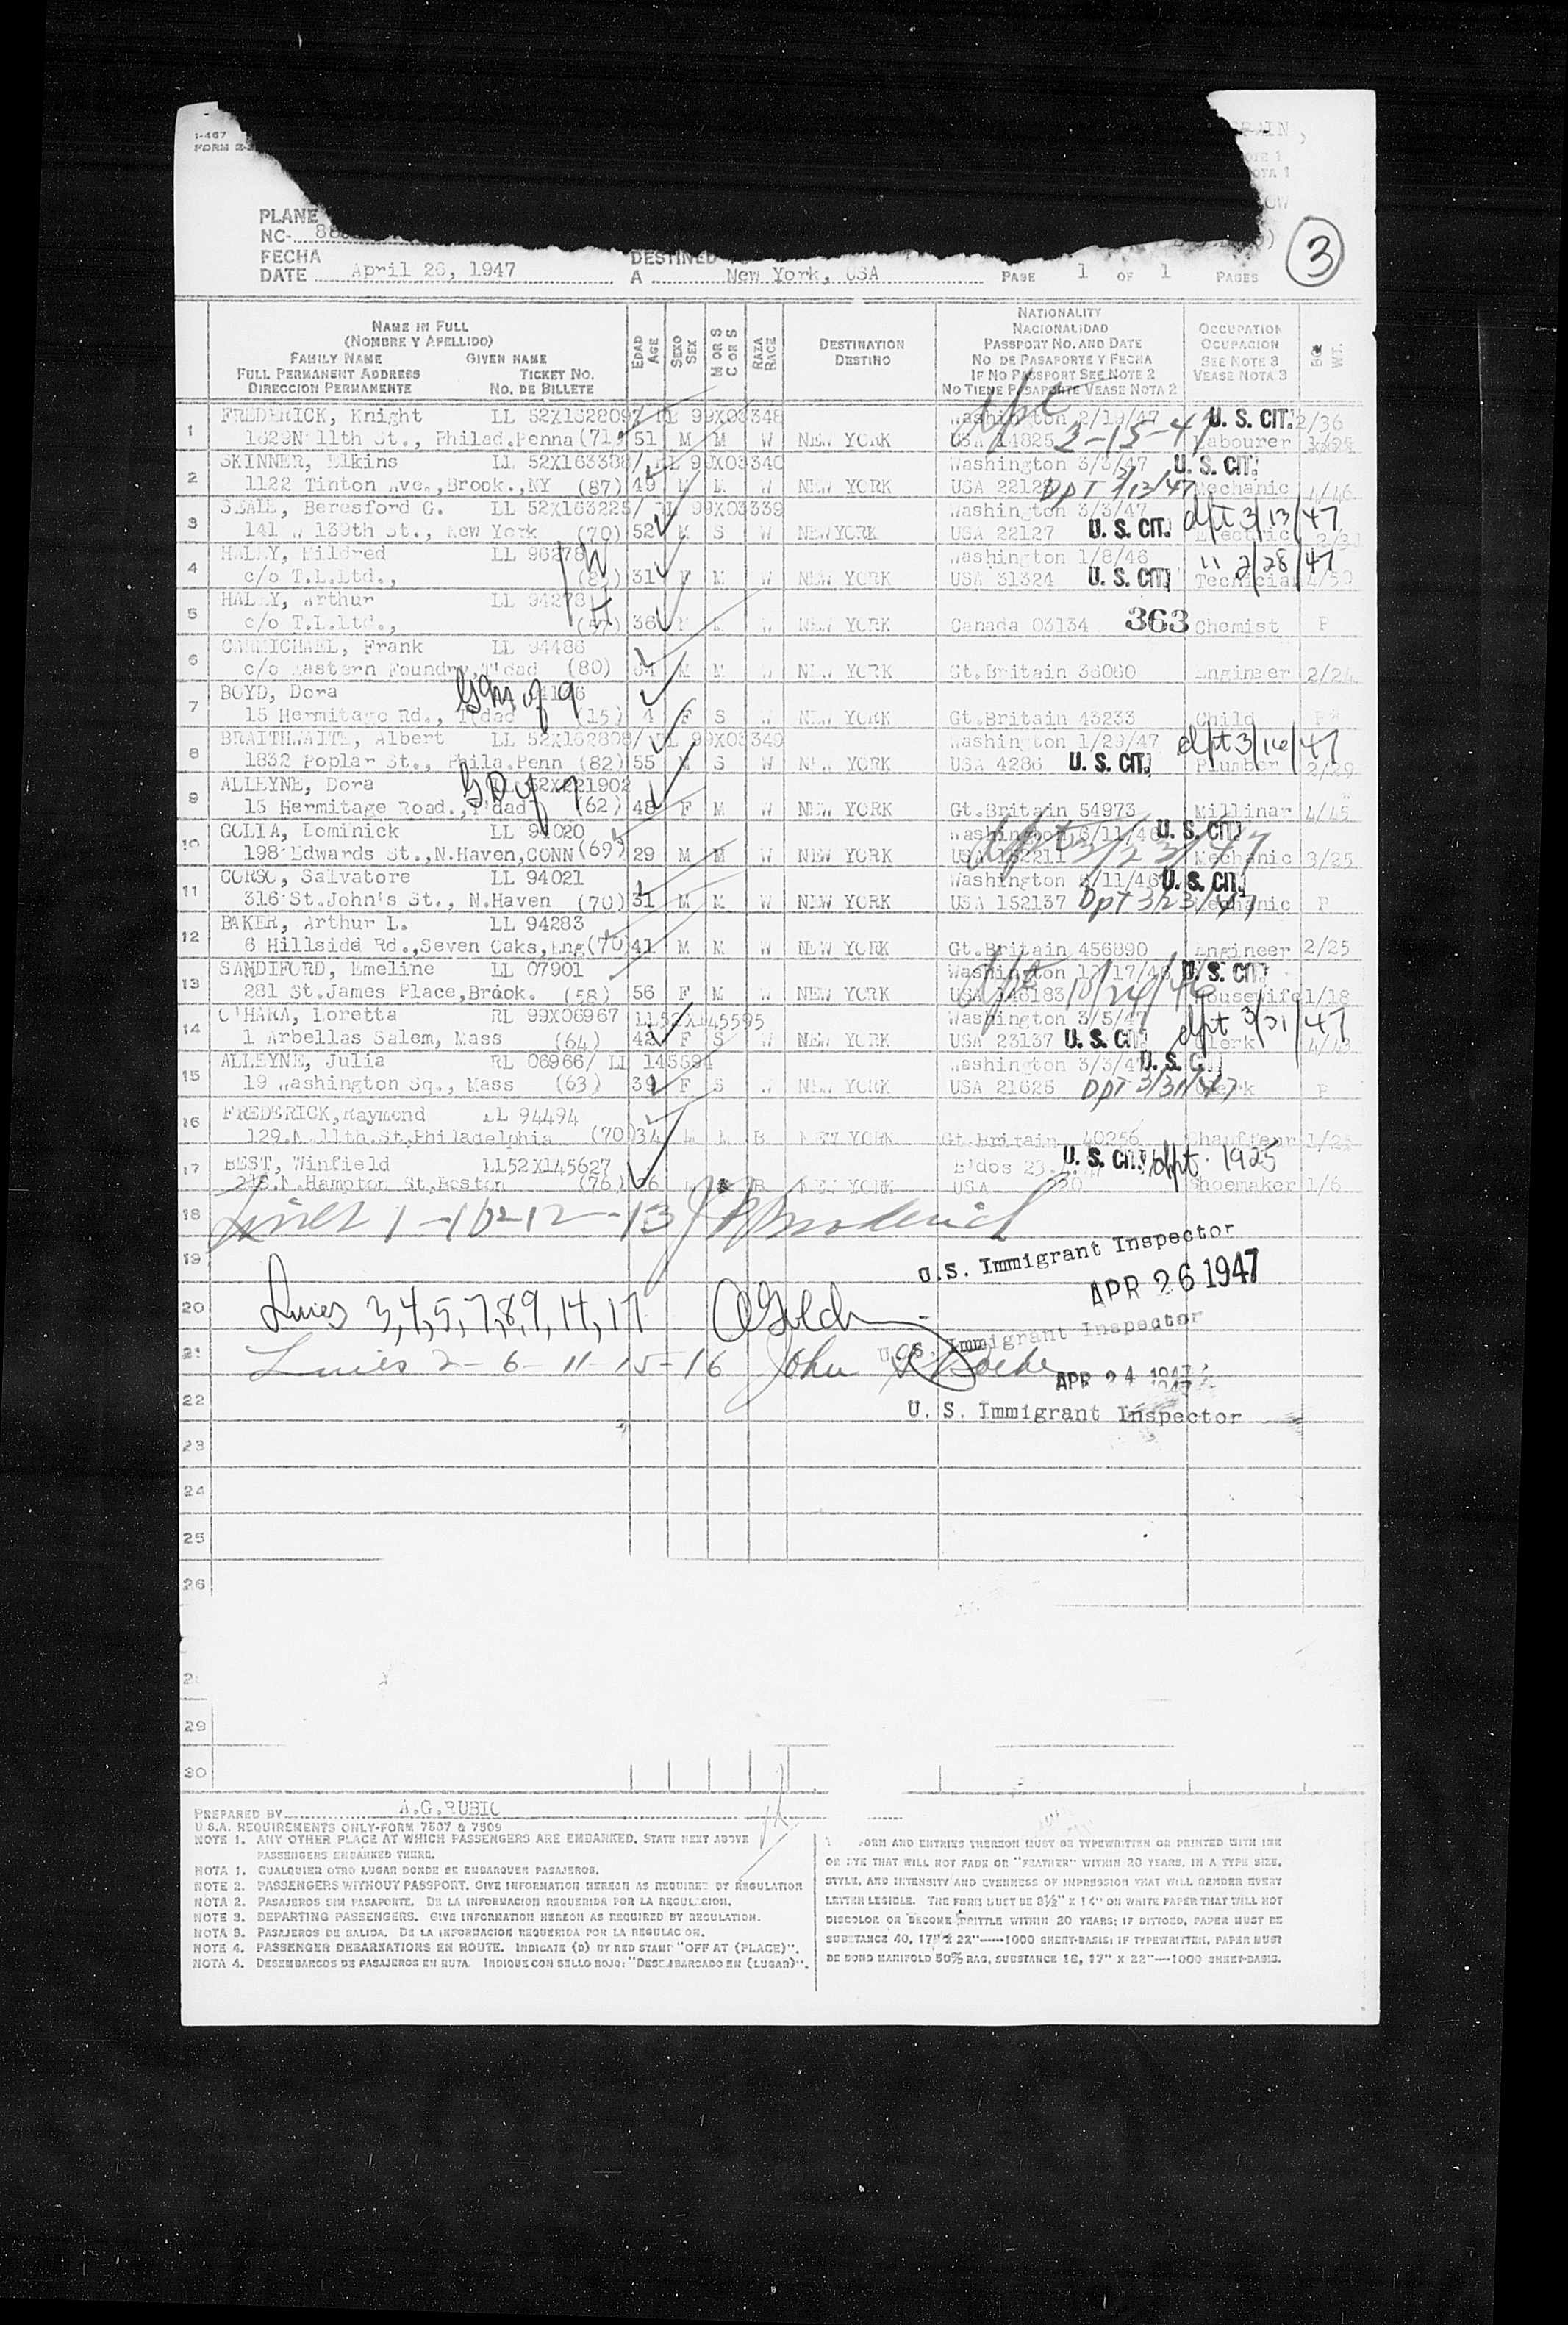 I-467
FORM
SPAIN,
NOTE 1
NOTA 1
PLANE
NC- 88
3
FECHA
DATE April 26, 1947
DESTINED
A New York, USA
PAGE 1 OF 1 PAGES
NAME IN FULL
(NOMBRE Y APELLIDO)
FAMILY NAME GIVEN NAME
FULL PERMANENT ADDRESS TICKET NO.
DIRECCION PERMANENTE NO. DE BILLETE
EDAD AGE
SEXO SEX
M OR S C OR S
RAZA RACE
DESTINATION
DESTINO
NATIONALITY
NACIONALIDAD
PASSPORT NO. AND DATE
NO DE PASAPORTE Y FECHA
IF NO PASSPORT SEE NOTE 2
NO TIENE PASAPORTE VEASE NOTA 2
OCCUPATION
OCUPACION
SEE NOTE 3
VEASE NOTA 3
WT.
1 FREDERICK, Knight LL 52X1622809/ RL 99X03348 Washington 2/19/47 U. S. CIT. 2/36
1629N 11th St., Philad.Penna (71) 51 M M W NEW YORK USA 14825 dpt 3-15-47 Labourer
2 SKINNER, Elkins LL 52X163388/ RL 99X03340 Washington 3/3/47 U. S. CIT.
1122 Tinton Ave.,Brook.,NY (87) 49 M M W NEW YORK USA 22128 DPT 3/13/47 Mechanic 4/46
3 SEALE, Beresford G. LL 52X163225/ RL 99X03339 Washington 3/3/47 dpt 3/13/47
141 W 139th St., New York (70) 52 M S W NEWYORK USA 22127 U. S. CIT. Electric 2/31
4 HALEY, Mildred LL 96278 Washington 1/8/46 " 2/28/47
c/o T.L.Ltd., 31 F M W NEW YORK USA 31324 U. S. CIT. Technician 4/50
5 HALEY, Arthur LL 94278
c/o T.L.Ltd., 36 M M W NEW YORK Canada 03134 363 Chemist P
6 CARMICHAEL, Frank LL 94486
c/o Eastern Foundry,T'dad (80) 34 M M W NEW YORK Gt.Britain 36060 Engineer 2/24
7 BOYD, Dora GM of 9
15 Hermitage Rd., T'dad (15) 4 F S W NEW YORK Gt.Britain 43233 Child
8 BRAITHWAITE, Albert LL 52X162808/ RL 99X03349 Washington 1/29/47 dpt 3/16/47
1832 Poplar St., Phila.Penn (82) 55 M S W NEW YORK USA 4286 U. S. CIT. Plumber 2/29
9 ALLEYNE, Dora GD of 7 52X221902
15 Hermitage Road.,T'dad (62) 48 F M W NEW YORK Gt.Britain 54973 Millinar 4/45
10 GOLIA, Dominick LL 94020 Washington 6/11/46 U. S. CIT.
198 Edwards St.,N.Haven,CONN (69) 29 M M W NEW YORK USA 152211 dpt 3/23/47 Mechanic 3/25
11 CORSO, Salvatore LL 94021 Washington 6/11/46 U. S. CIT.
316 St.John's St., N.Haven (70) 31 M M W NEW YORK USA 152137 Dpt 3/23/47 Mechanic P
12 BAKER, Arthur L. LL 94283
6 Hillside Rd.,Seven Oaks,Eng (70) 41 M M W NEW YORK Gt.Britain 456890 Engineer 2/25
13 SANDIFORD, Emeline LL 07901 Washington U. S. CIT.
281 St.James Place,Brook. (58) 56 F M W NEW YORK USA 146183 dpt 10/26/46 Housewife 1/18
14 O'HARA, Loretta RL 99X06967 LL52X145595 Washington 3/5/47 dpt 3/31/47
1 Arbellas Salem, Mass (64) 42 F S W NEW YORK USA 23137 U. S. CIT. Clerk 4/43
15 ALLEYNE, Julia RL 06966/ LL 145594 Washington 3/3/47 U. S. CIT.
19 Washington Sq., Mass (63) 39 F S W NEW YORK USA 21625 DPT 3/31/47 Clerk P
16 FREDERICK,Raymond LL 94494
129.N.11th.St.Philadelphia (70) 34 M M B NEW YORK Gt.Britain 40256 Chauffeur
17 BEST, Winfield LL52X145627 B'dos U. S. CIT. dpt. 1925
N.Hampton St,Boston (76) B NEW YORK USA Shoemaker 1/6
18 Lines 1-10-12-13 J P Broderick
U.S. Immigrant Inspector
19
APR 26 1947
20 Lines 3,4,5,7,8,9,14,17 U.S. Immigrant Inspector
21 Lines 2-6-11-15-16 John
APR 24 1947
22 U. S. Immigrant Inspector
23
24
25
26
29
30
PREPARED BY A.G.RUBIO
U.S.A. REQUIREMENTS ONLY-FORM 7507 & 7509
NOTE 1. ANY OTHER PLACE AT WHICH PASSENGERS ARE EMBARKED. STATE NEXT ABOVE
PASSENGERS EMBARKED THERE.
NOTA 1. CUALQUIER OTRO LUGAR DONDE SE EMBARQUEN PASAJEROS.
NOTE 2. PASSENGERS WITHOUT PASSPORT. GIVE INFORMATION HEREON AS REQUIRED BY REGULATION
NOTA 2. PASAJEROS SIN PASAPORTE. DE LA INFORMACION REQUERIDA POR LA REGULACION.
NOTE 3. DEPARTING PASSENGERS. GIVE INFORMATION HEREON AS REQUIRED BY REGULATION.
NOTA 3. PASAJEROS DE SALIDA. DE LA INFORMACION REQUERIDA POR LA REGULACION.
NOTE 4. PASSENGER DEBARKATIONS EN ROUTE. INDICATE (D) BY RED STAMP "OFF AT (PLACE)".
NOTA 4. DESEMBARCOS DE PASAJEROS EN RUTA. INDIQUE CON SELLO ROJO: "DESEMBARCADO EN (LUGAR)".
FORM AND ENTRIES THEREON MUST BE TYPEWRITTEN OR PRINTED WITH INK
OR DYE THAT WILL NOT FADE OR "FEATHER" WITHIN 20 YEARS, IN A TYPE SIZE,
STYLE, AND INTENSITY AND EVENNESS OF IMPRESSION THAT WILL RENDER EVERY
LETTER LEGIBLE. THE FORM MUST BE 8½" X 14" ON WHITE PAPER THAT WILL NOT
DISCOLOR OR BECOME BRITTLE WITHIN 20 YEARS; IF DITTOED, PAPER MUST BE
SUBSTANCE 40, 17" X 22"—1000 SHEET-BASIS; IF TYPEWRITTEN, PAPER MUST
BE BOND MANIFOLD 50% RAG, SUBSTANCE 16, 17" X 22"—1000 SHEET-BASIS.